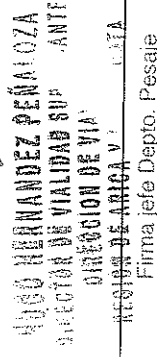 HUGO HERNANDEZ PEÑALOZA
DIRECTOR DE VIALIDAD SUP ANTE
DIRECCION DE VIA
REGION DE ARICA Y
Firma jefe Depto. Pesaje